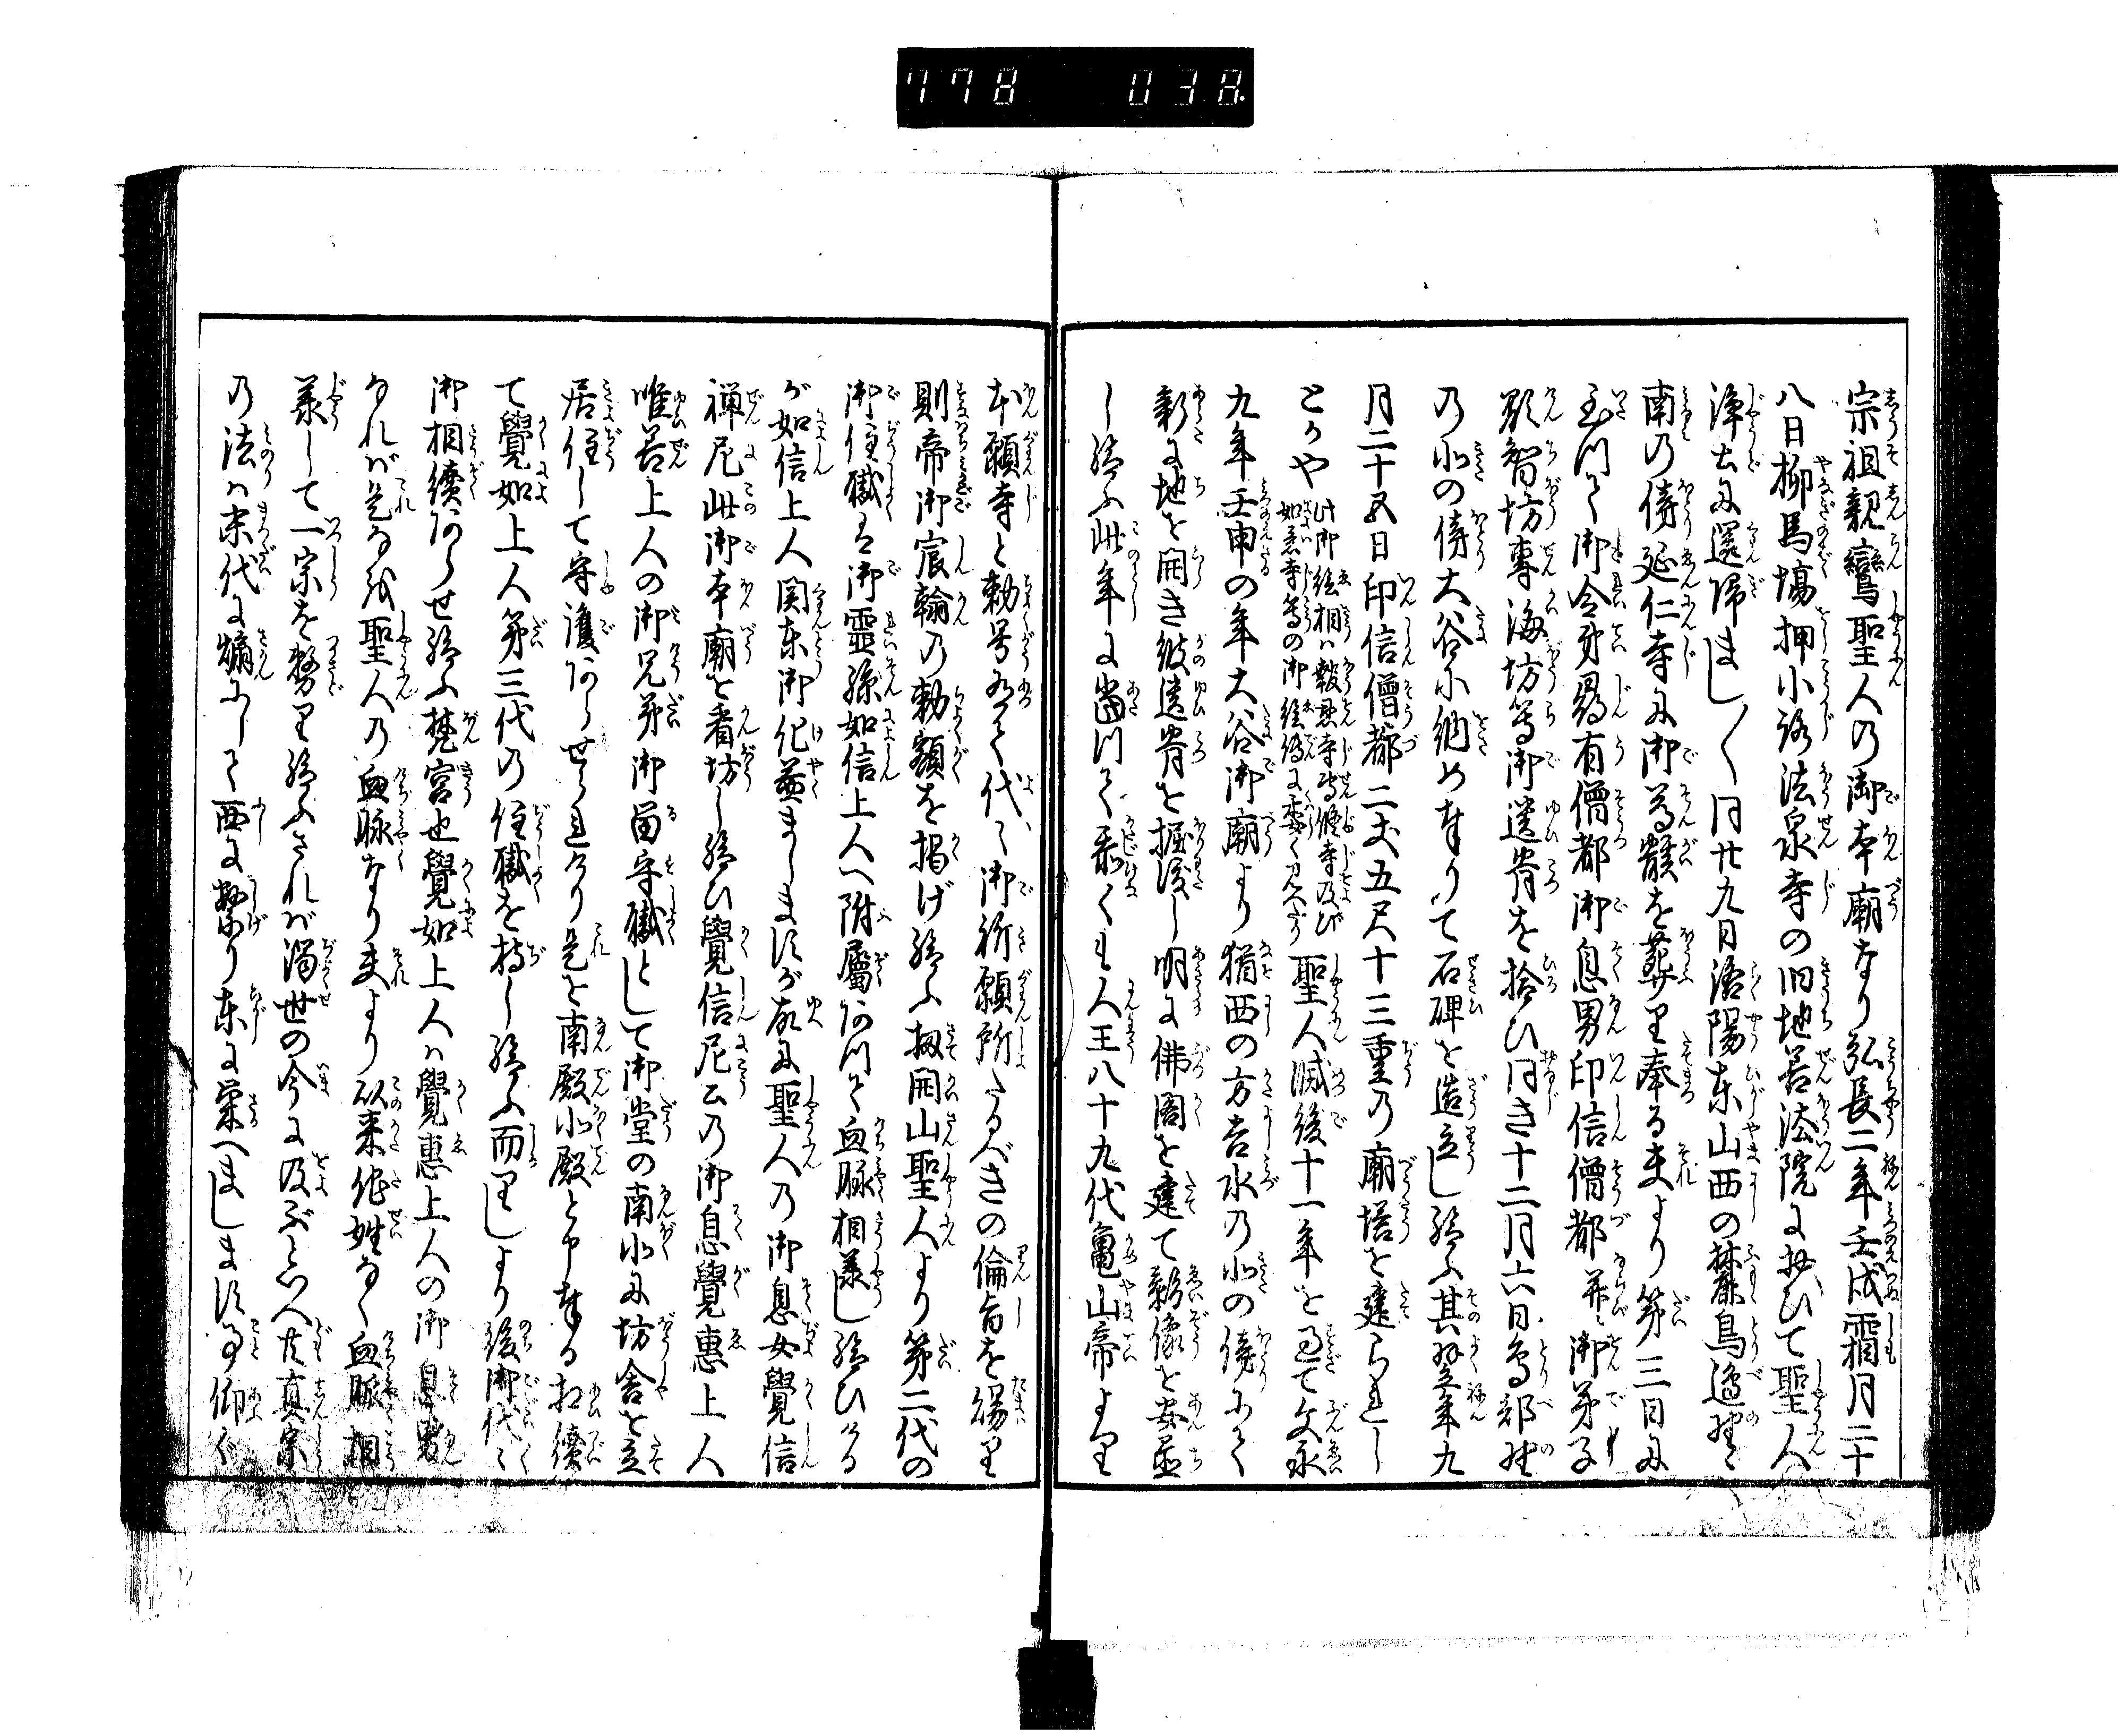 778 038
宗祖親鸞聖人の御本廟なり弘長二年壬戌霜月二十
八日柳馬場押小路法泉寺の旧地善法院に於ひて聖人
浄土に還帰まし〳〵同廿九日洛陽東山西の麓鳥邊野
南の傍延仁寺に御尊骸を葬り奉る夫より第三日に
至つて御令弟尋有僧都御息男印信僧都并に御弟子
顕智坊專海坊等御遺骨を拾ひ同き十二月六日鳥部野
の北の傍大谷に納め奉りて石碑を造立し給ふ其翌年九
月二十五日印信僧都二丈五尺十三重の廟塔を建られし
とかや
此御絵相ハ報恩寺専修寺及び
如意寺等の御絵傳に委く見へたり
聖人滅後十一年を過て文永
九年壬申の年大谷御廟より猶西の方吉水の北の傍にて
新に地を開き彼遺骨を掘渡し明に佛閣を建て影像を安置
し給ふ此年に當つて忝くも人王八十九代亀山帝より
本願寺と勅号有て代々御祈願所たるべきの倫旨を賜り
則帝御宸翰の勅額を掲げ給ふ扨開山聖人より第二代の
御住職は御霊孫如信上人へ附屬あつて血脉相羕し給ひける
が如信上人関東御化益ましますが故に聖人の御息女覺信
禅尼此御本廟を看坊し給ひ覺信尼公の御息覺惠上人
唯善上人の御兄弟御留守職として御堂の南北に坊舎を立
居住して守護あらせられけり是を南殿北殿と申奉る相續
て覺如上人第三代の住職を持し給ふ而りしより後御代々
御相續あらせ給ふ梵宮也覺如上人ハ覺惠上人の御息男
なれバ是なを聖人の血脉なり夫より以来他姓なく血脈相
羕して一宗を務り給ふされバ濁世の今に及ぶといへ共真宗
の法ハ末代に熾にして西に繁り東に栄へまします事仰ぐ